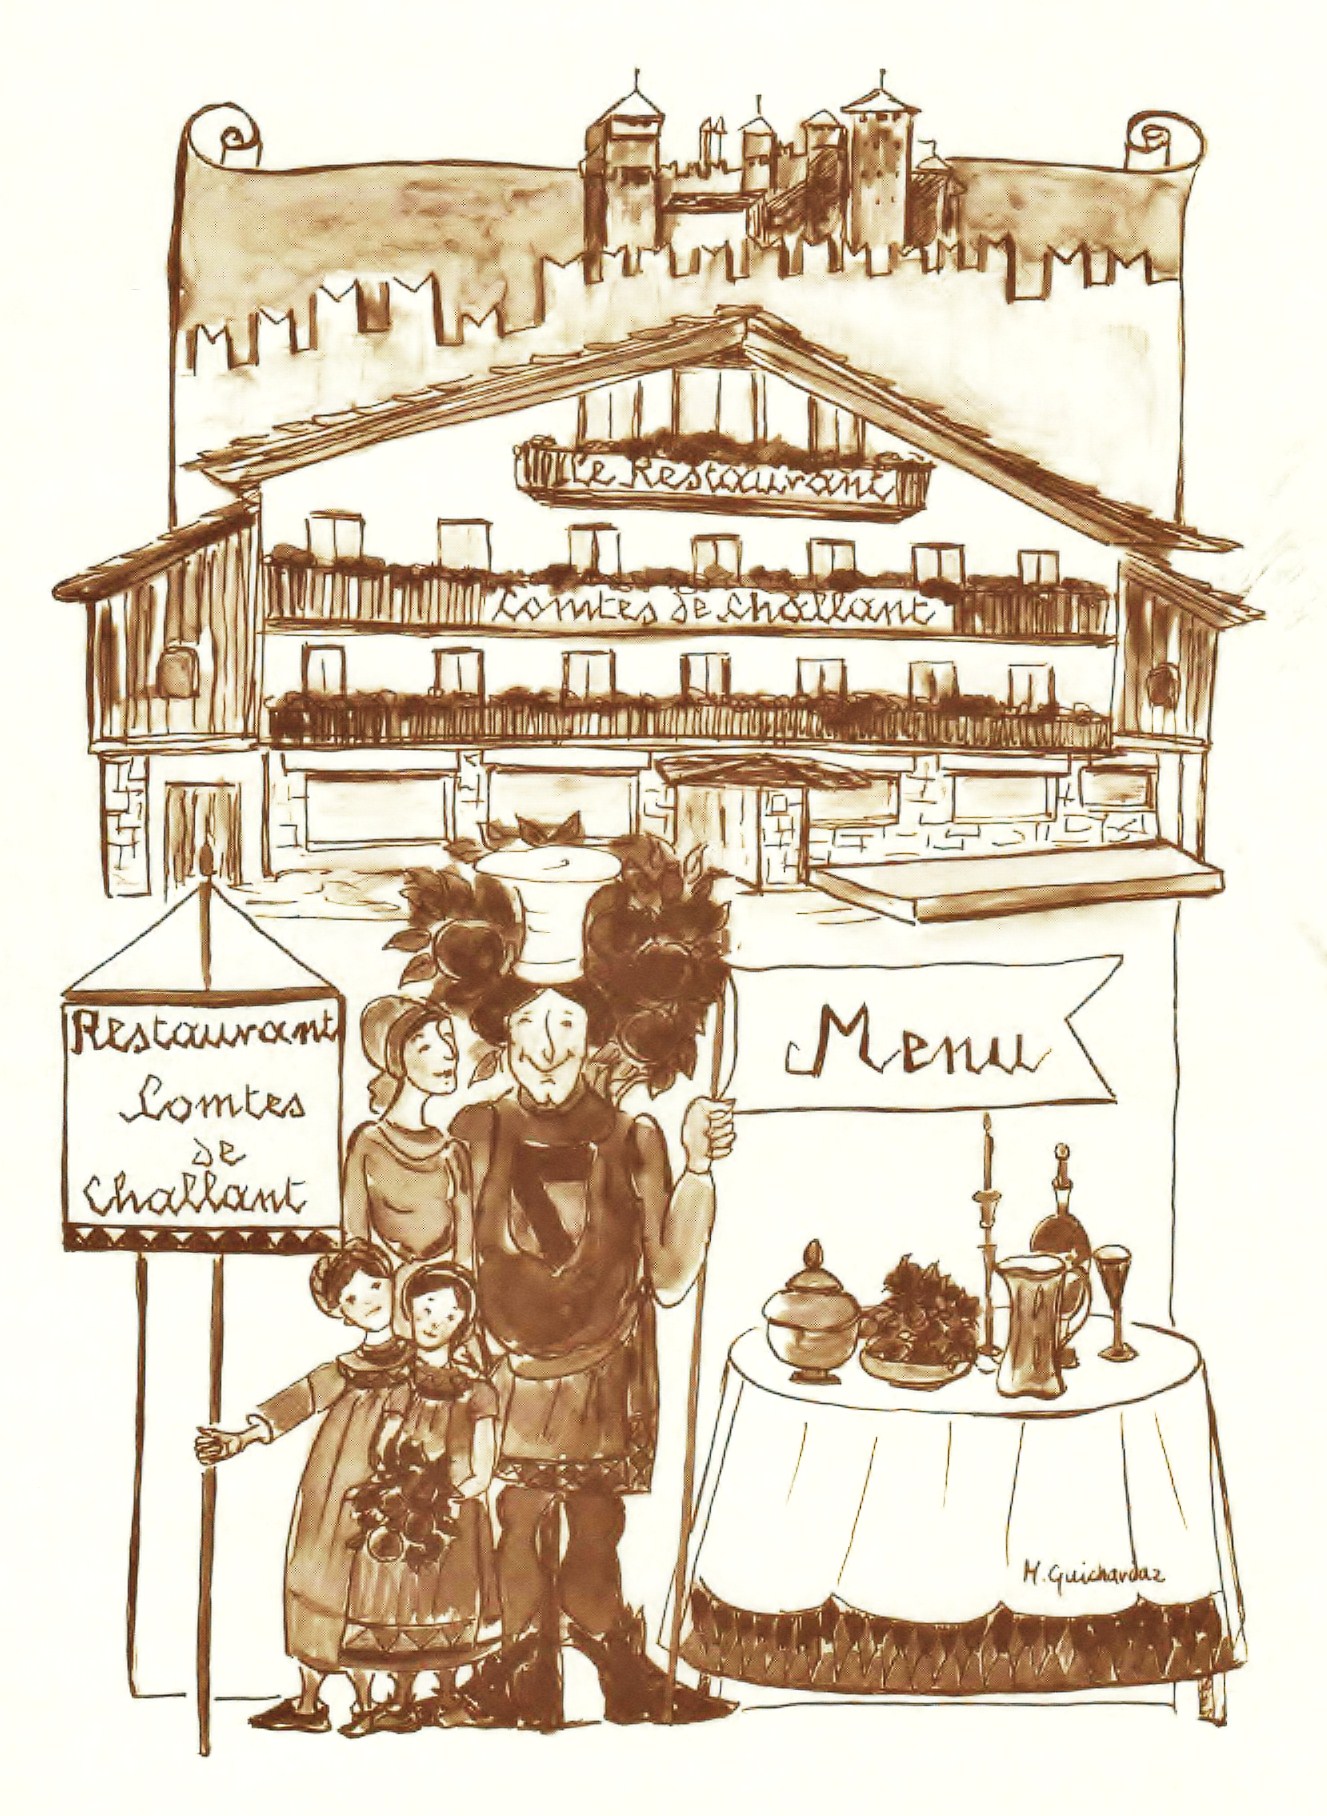 Le Restaurant
Comtes de Challant
Restaurant
Comtes
de
Challant
Menu
M. Guichardaz